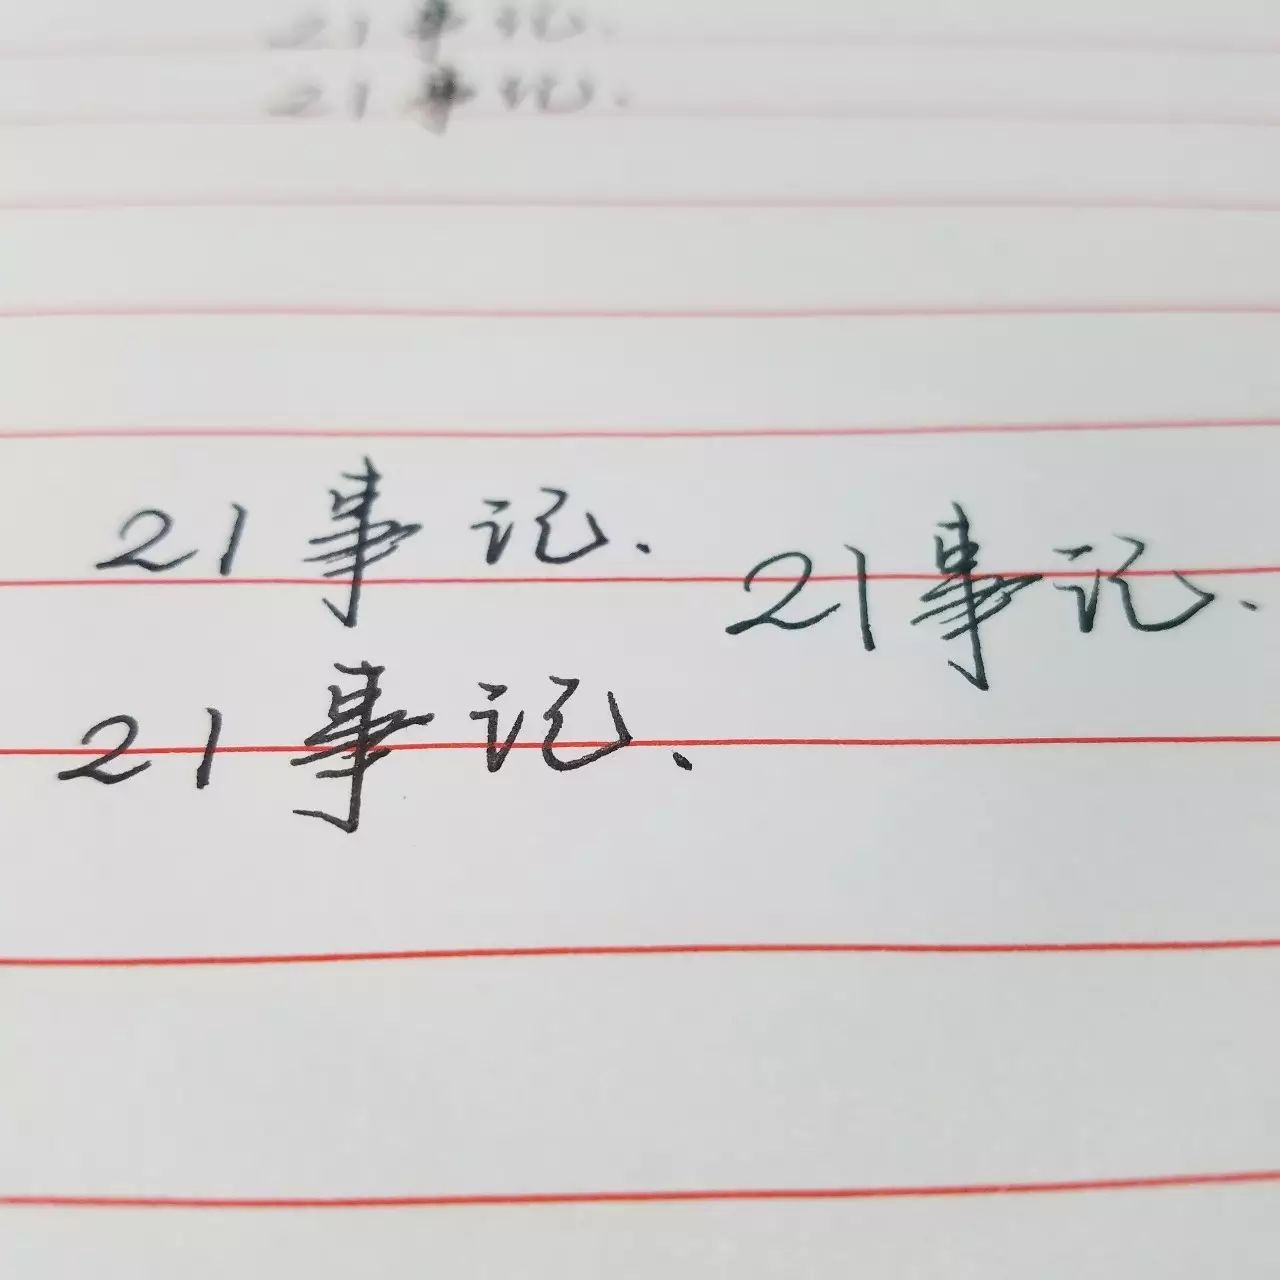 21事记.
21事记.
21事记.
21事记.
21事记.